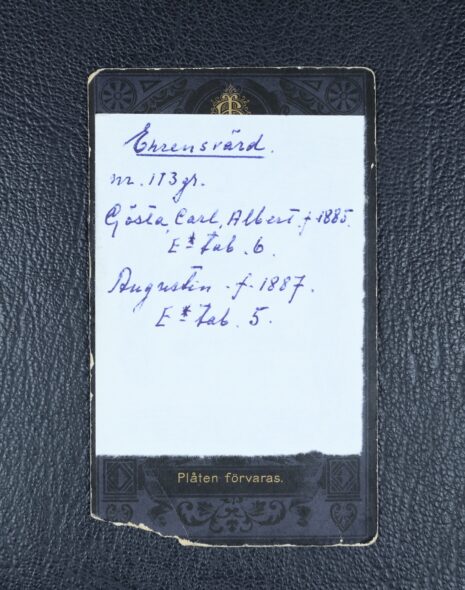 Ehrensvärd.
nr. 113 gr.
Gösta, Carl, Albert. f. 1885.
E* tab. 6.
Augustin - f. 1887.
E* tab. 5.
Plåten förvaras.